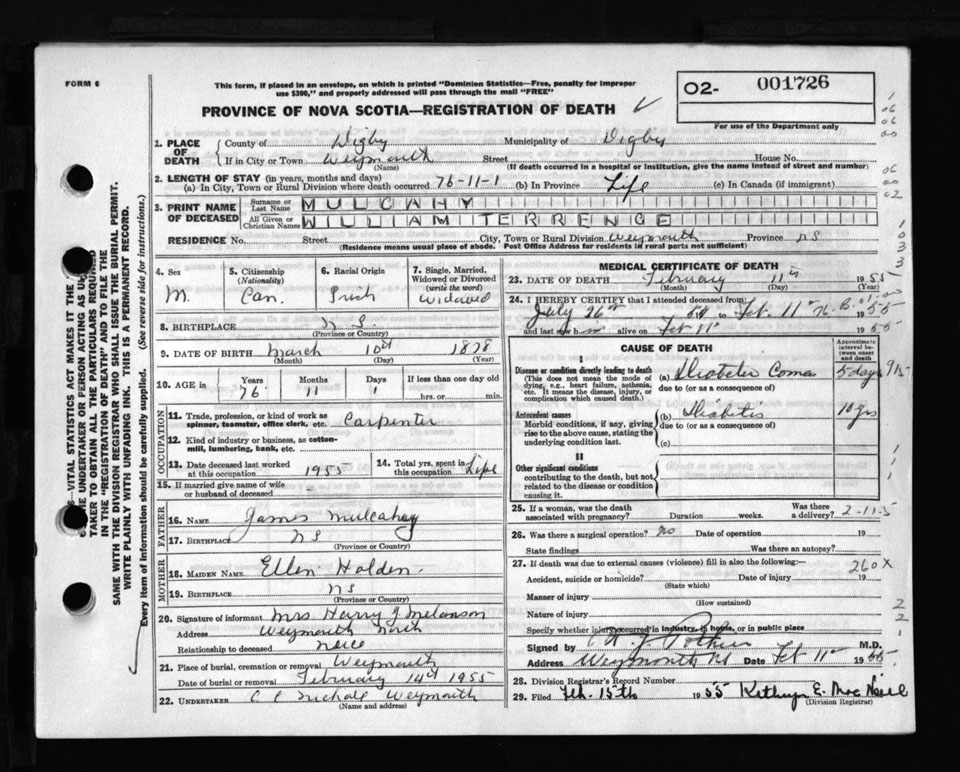 FORM 6
This form, if placed in an envelope, on which is printed "Dominion Statistics—Free, penalty for improper
use $300," and properly addressed will pass through the mail "FREE"
PROVINCE OF NOVA SCOTIA—REGISTRATION OF DEATH
O2- 001726
For use of the Department only
1. PLACE OF DEATH
County of Digby Municipality of Digby
If in City or Town Weymouth Street House No.
(Name) (If death occurred in a hospital or institution, give the name instead of street and number)
2. LENGTH OF STAY (in years, months and days)
(a) In City, Town or Rural Division where death occurred 76-11-1 (b) In Province Life (c) In Canada (if immigrant)
3. PRINT NAME OF DECEASED
Surname or Last Name MULCAHY
All Given or Christian Names WILLIAM TERRENCE
RESIDENCE No. Street City, Town or Rural Division Weymouth Province NS
(Residence means usual place of abode. Post Office Address for residents in rural parts not sufficient)
4. Sex M.
5. Citizenship (Nationality) Can.
6. Racial Origin Irish
7. Single, Married, Widowed or Divorced (write the word) Widowed
8. BIRTHPLACE N S.
(Province or Country)
9. DATE OF BIRTH March 10th 1878
(Month) (Day) (Year)
10. AGE in Years Months Days If less than one day old
76 11 1 hrs. or min.
OCCUPATION
11. Trade, profession, or kind of work as spinner, teamster, office clerk, etc. Carpenter
12. Kind of industry or business, as cotton-mill, lumbering, bank, etc.
13. Date deceased last worked at this occupation 1955
14. Total yrs. spent in this occupation Life
15. If married give name of wife or husband of deceased
FATHER
16. NAME James Mulcahay
17. BIRTHPLACE NS
(Province or Country)
MOTHER
18. MAIDEN NAME Ellen Holden.
19. BIRTHPLACE NS
(Province or Country)
20. Signature of informant Mrs Harry J Melanson
Address Weymouth North
Relationship to deceased Neice
21. Place of burial, cremation or removal Weymouth
Date of burial or removal February 14th 1955
22. UNDERTAKER C C Weymouth
(Name and address)
MEDICAL CERTIFICATE OF DEATH
23. DATE OF DEATH February 11th 1955
(Month) (Day)
24. I HEREBY CERTIFY that I attended deceased from:
July 26th 54 to Feb. 11th 1955
and last saw h im alive on Feb 11th 1955
CAUSE OF DEATH
Approximate interval between onset and death
I
Disease or condition directly leading to death
(This does not mean the mode of dying, e.g., heart failure, asthenia, etc. It means the disease, injury, or complication which caused death.)
(a) Diabetic Coma 5 days
due to (or as a consequence of)
Antecedent causes
Morbid conditions, if any, giving rise to the above cause, stating the underlying condition last.
(b) Diabetis 10 yrs
due to (or as a consequence of)
(c)
II
Other significant conditions
contributing to the death, but not related to the disease or condition causing it.
25. If a woman, was the death associated with pregnancy? Duration weeks. Was there a delivery? 2-11-5
26. Was there a surgical operation? No Date of operation 19
State findings Was there an autopsy?
27. If death was due to external causes (violence) fill in also the following:— 260X
Accident, suicide or homicide? Date of injury 19
(State which)
Manner of injury
(How sustained)
Nature of injury
Specify whether injury occurred in industry, in home, or in public place
Signed by M.D.
Address Weymouth NS Date Feb 11th 1955.
28. Division Registrar's Record Number
29. Filed Feb. 15th 1955 Kathryn E. MacNeill
(Division Registrar)
VITAL STATISTICS ACT MAKES IT THE
THE UNDERTAKER OR PERSON ACTING AS UNDER-
TAKER TO OBTAIN ALL THE PARTICULARS REQUIRED
IN THE "REGISTRATION OF DEATH" AND TO FILE THE
SAME WITH THE DIVISION REGISTRAR WHO SHALL ISSUE THE BURIAL PERMIT.
WRITE PLAINLY WITH UNFADING INK. THIS IS A PERMANENT RECORD.
Every item of information should be carefully supplied. (See reverse side for instructions.)